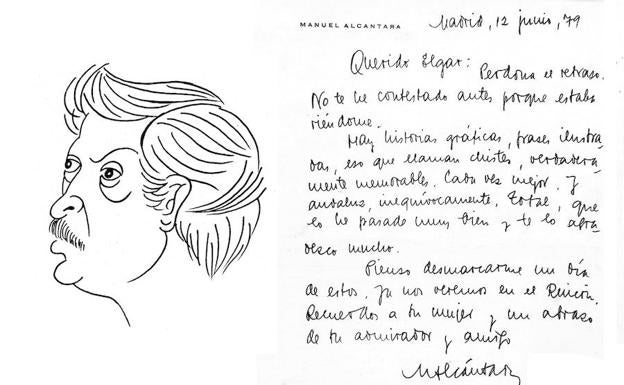 MANUEL ALCANTARA
Madrid, 12 junio, 79
Querido Elgar: Perdona el retraso.
No te he contestado antes porque estaba
riéndome.
Hay historias gráficas, frases ilustra-
das, eso que llaman chistes, verdadera-
mente memorables. Cada vez mejor. Y
andaluz, inequívocamente. Total, que
lo he pasado muy bien y te lo agra-
dezco mucho.
Pienso desmarcarme un día
de estos. Ya nos veremos en el Rincón.
Recuerdos a tu mujer y un abrazo
de tu admirador y amigo
MAlcántara